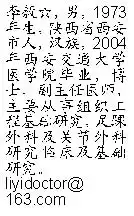 李毅六，男，1973
年生，陕西省西安
市人，汉族，2004
年西安交通大学
医学院毕业，博
士，副主任医师，
主要从事组织工
程基础研究，足踝
外科及关节外科
研究临床及基础
研究。
liyidoctor@
163.com